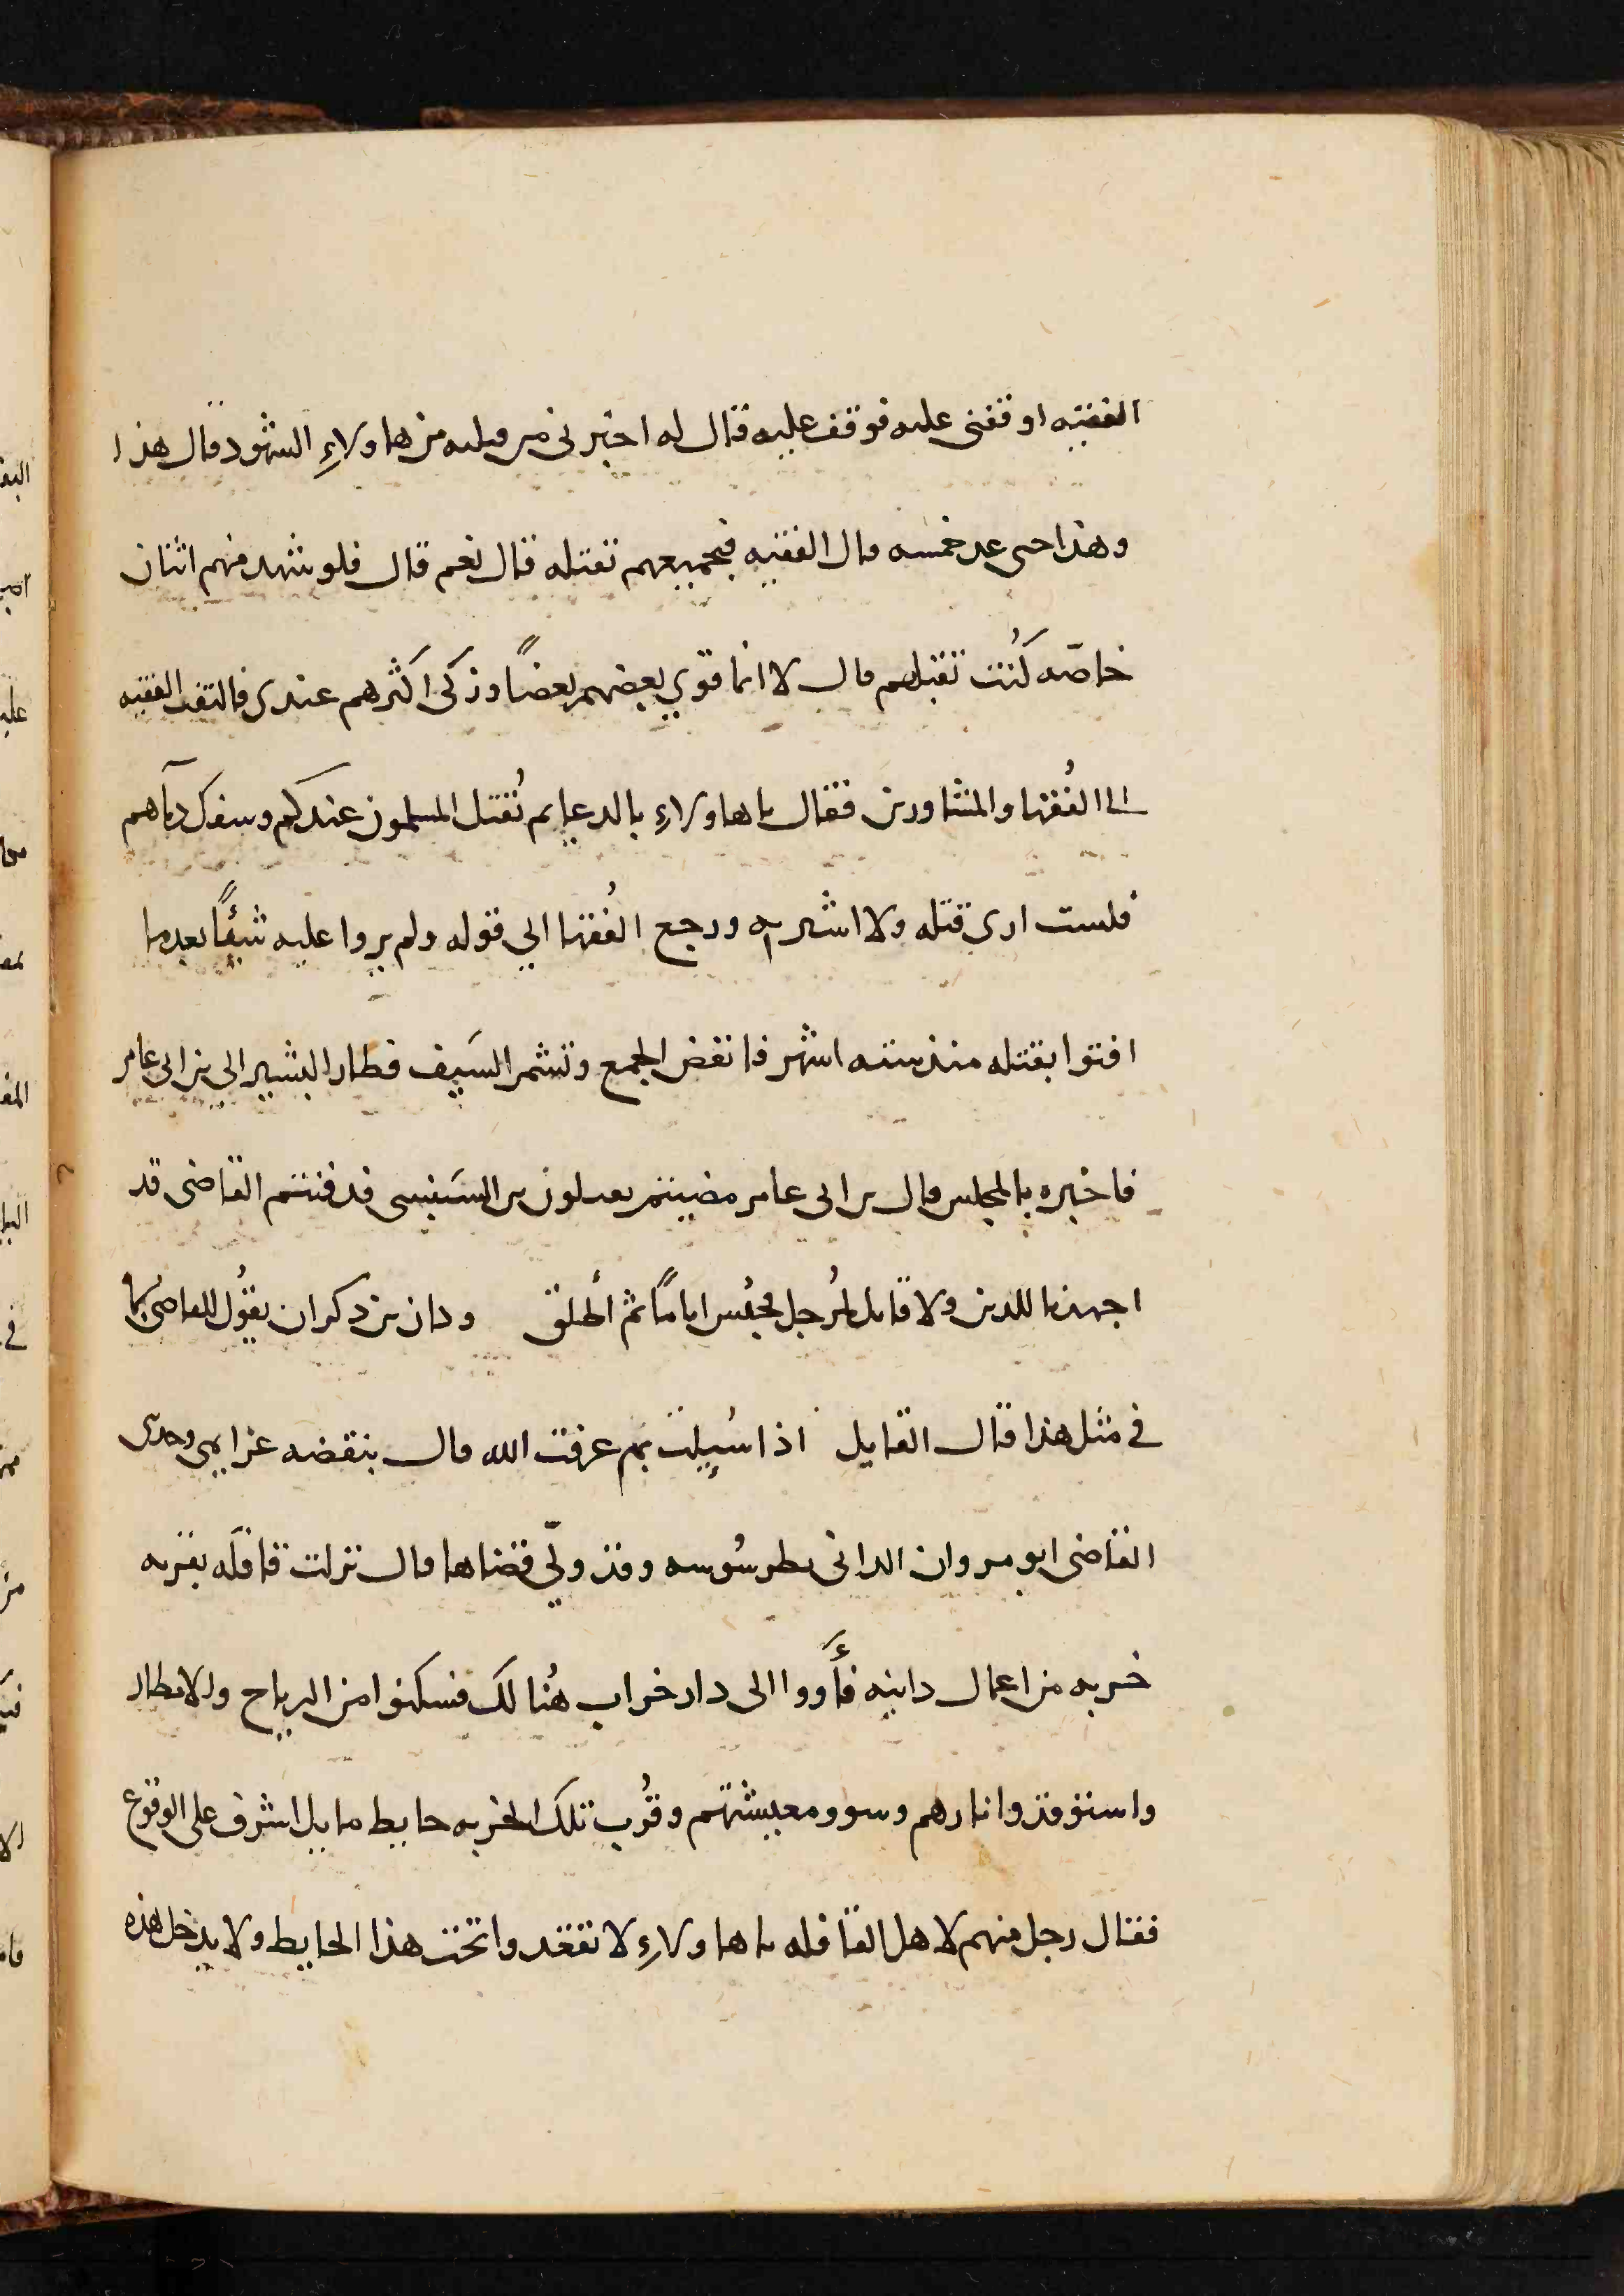 الفقيه اوقفنى عليه فوقف عليه قال له اخبرنى من قبلته من هاولاءِ الشهود قال هذا
وهذا حتى عد خمسه قال الفقيه فبجميعهم تقتله قال نعم قال فلو شهد منهم اثنان
خاصّه كُنت تقبلهم قال لا انما قوي بعضهم بعضًا وزكى اكثرهم عندى فالتفت الفقيه
الى الفُقها والمشاورين فقال ياهاولاءِ بالدعايم تُقتل المسلمون عندكم وسفك دمآهم
فلست ارى قتله ولا اشير به ورجع الفُقها الي قوله ولم يروا عليه شيئًا بعد ما
افتوا بقتله منذ سته اشهر فانفض الجمع وتشمر السَيف فطار البشير الى بن ابى عامر
فاخبره بالمجلس قال بن ابى عامر مضيتم بن السَنبسى قد فتنتم القاضى قد
اجهدنا للدين ولا قايل للرُجل فحُبس اياماً ثم اُطلق وكان بن ذكوان يقوُل للقاضى
فى مثل هذا قال القايل اذا سُيِلت بم عرفت الله قال بنقضه عزايمى وحدثنى
القاضى ابو مروان الدانى بطرسُوسه وقد ولّي قضاها قال نزلت قافله بقريه
خربه من اعمال دانيه فأَووا الى دار خراب هُنالك فسكنوا من الرياح والامطار
واستوقدوا نارهم وسووا معيشتهم وقُرب تلك الخربه حايط مايل اشرف على الوقوع
فقال رجل منهم لاهل القافله ياهاولاءِ لا تقعدوا تحت هذا الحايط ولا يدخل هذه